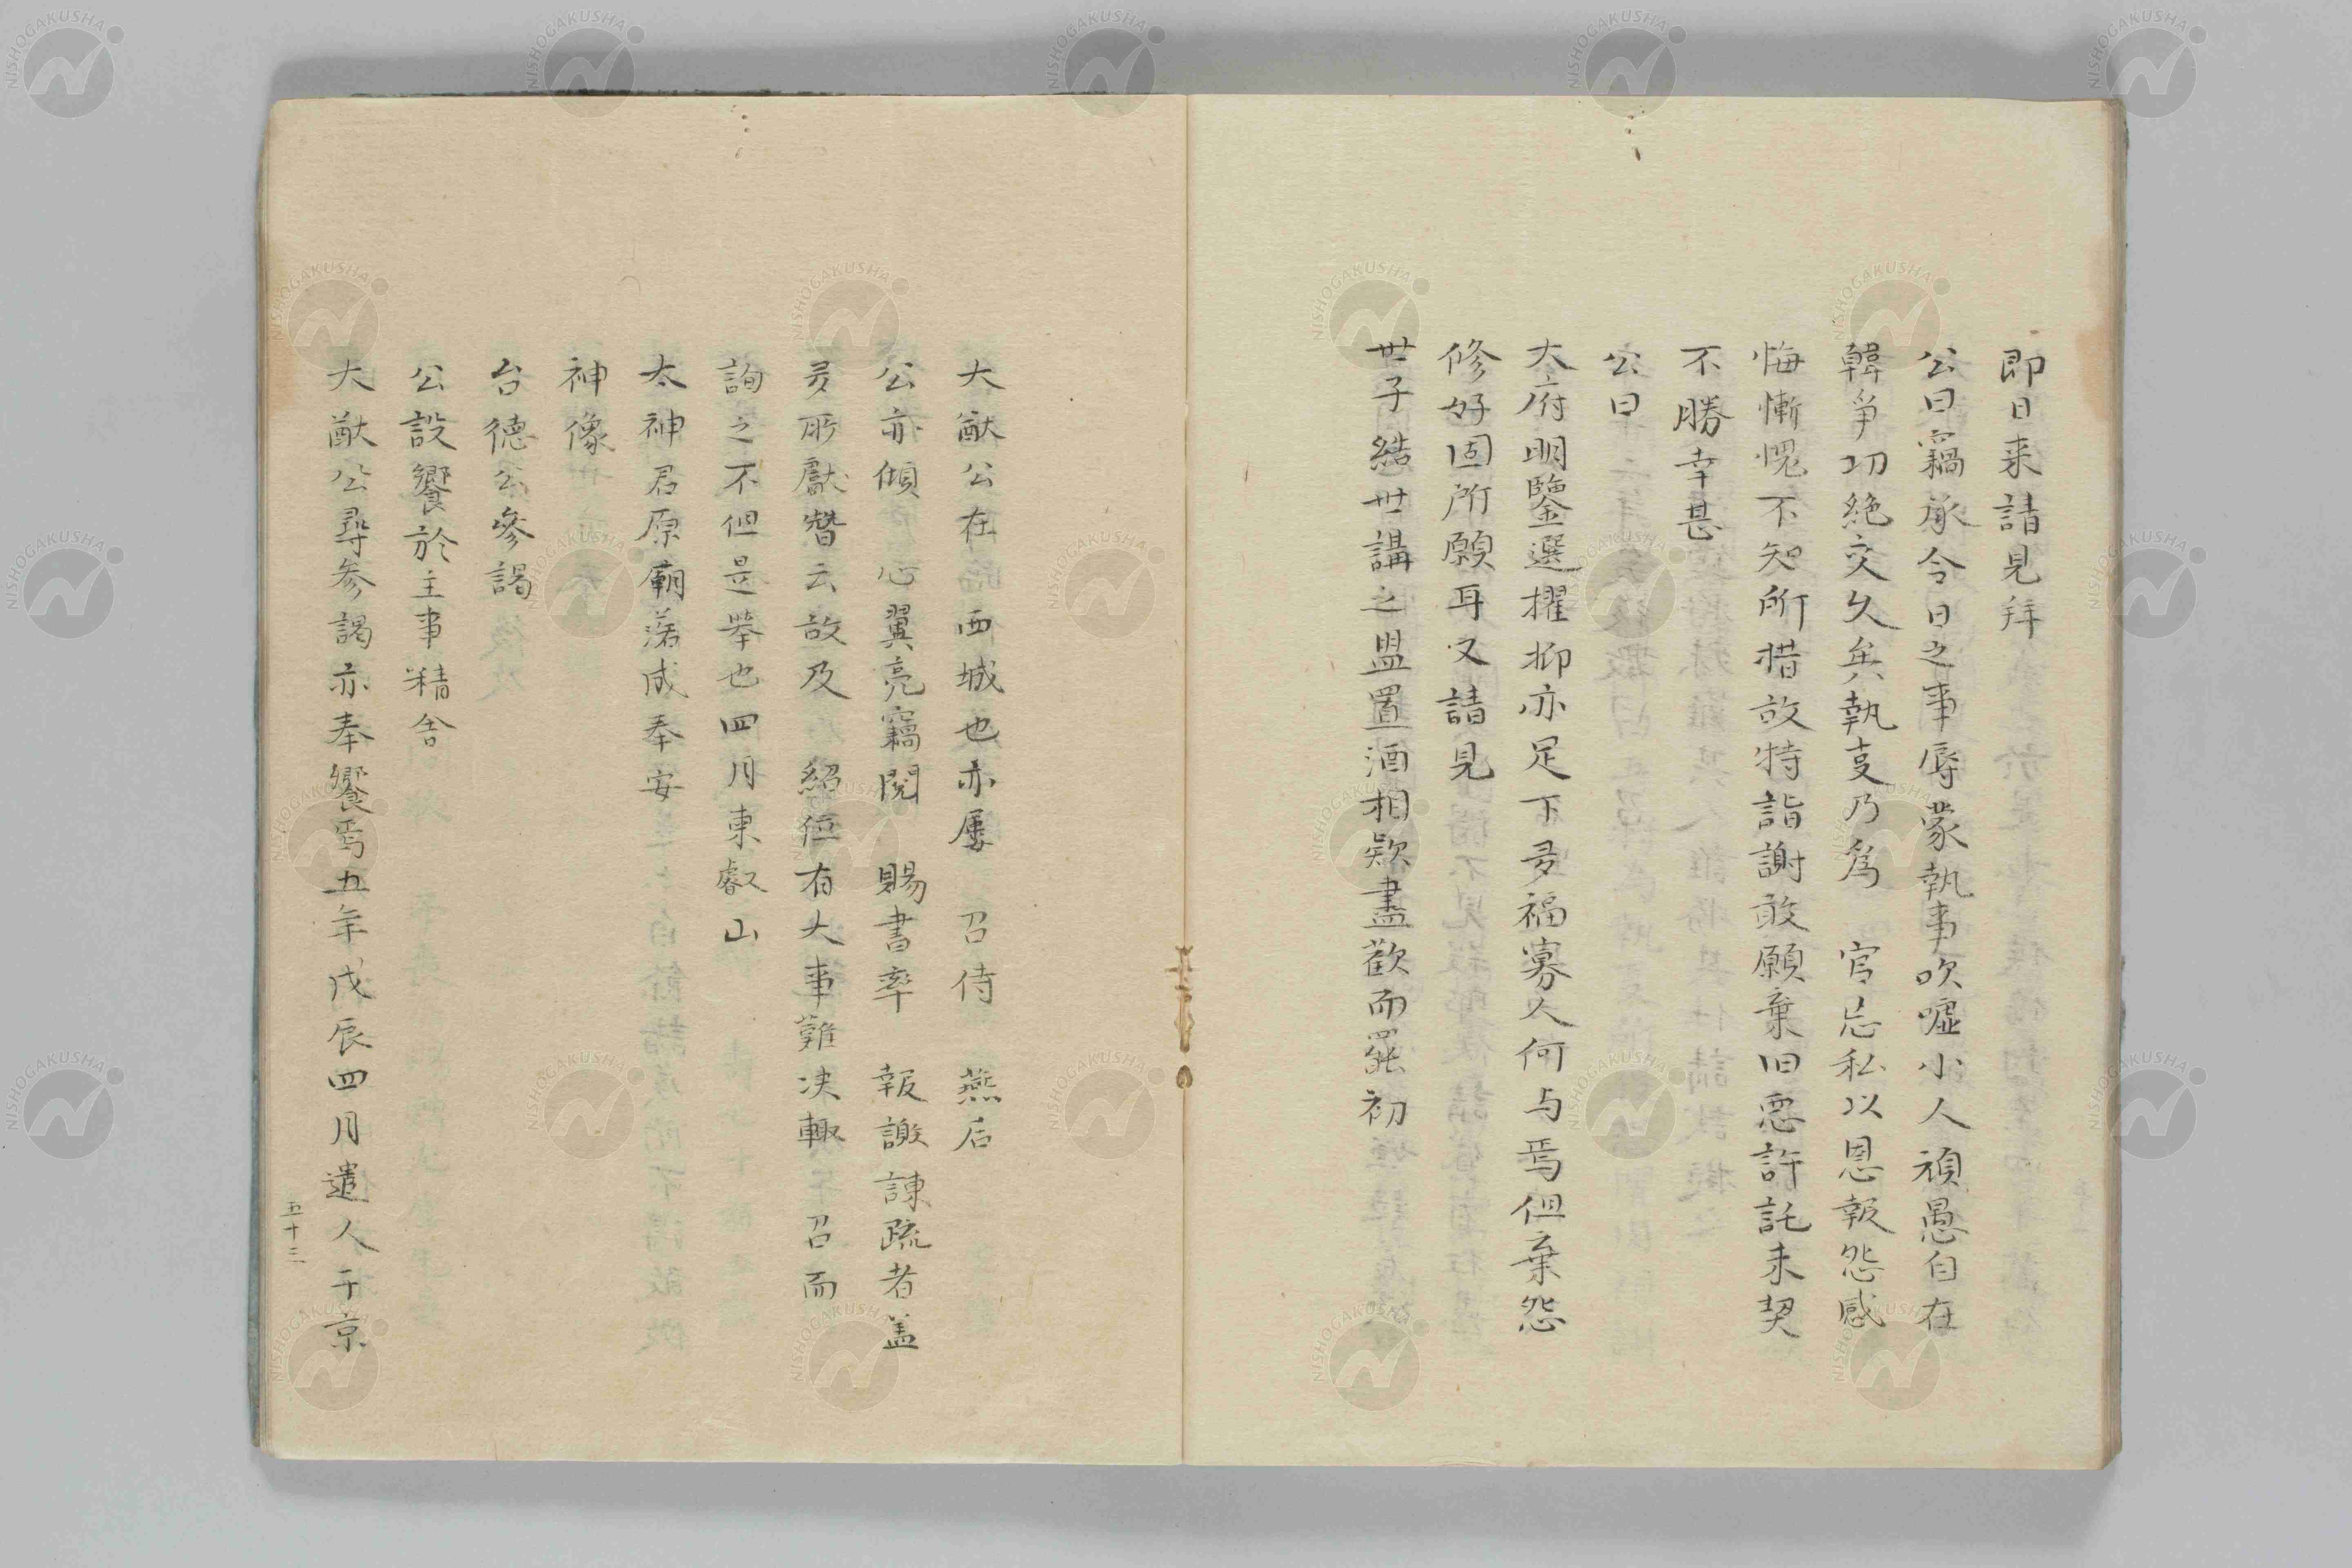 即日来請見拜
公曰竊承令日之事辱蒙執事吹嘘小人頑愚自在
韓爭功絶交久矣執事乃爲　官忘私以恩報怨感
悔慚愧不知所措故特詣謝敢願棄旧惡許託末契
不勝幸甚
公曰
大府明鑒選擢抑亦足下多福寡人何与焉但棄怨
修好固所願耳又請見
世子結世講之盟置酒相欵盡歡而罷初
大猷公在西城也亦屡　召侍　燕后
公亦傾心翼亮竊閲　賜書率　報謝諫疏者盖
多所獻替云故及　紹位有大事難决輙　召而
詢之不但是挙也四月東叡山
太神君原廟落成奉安
神像
台德公參謁
公設饗於主事精舍
大猷公尋参謁亦奉饗焉五年戊辰四月遣人于京
五十三
NISHOGAKUSHA